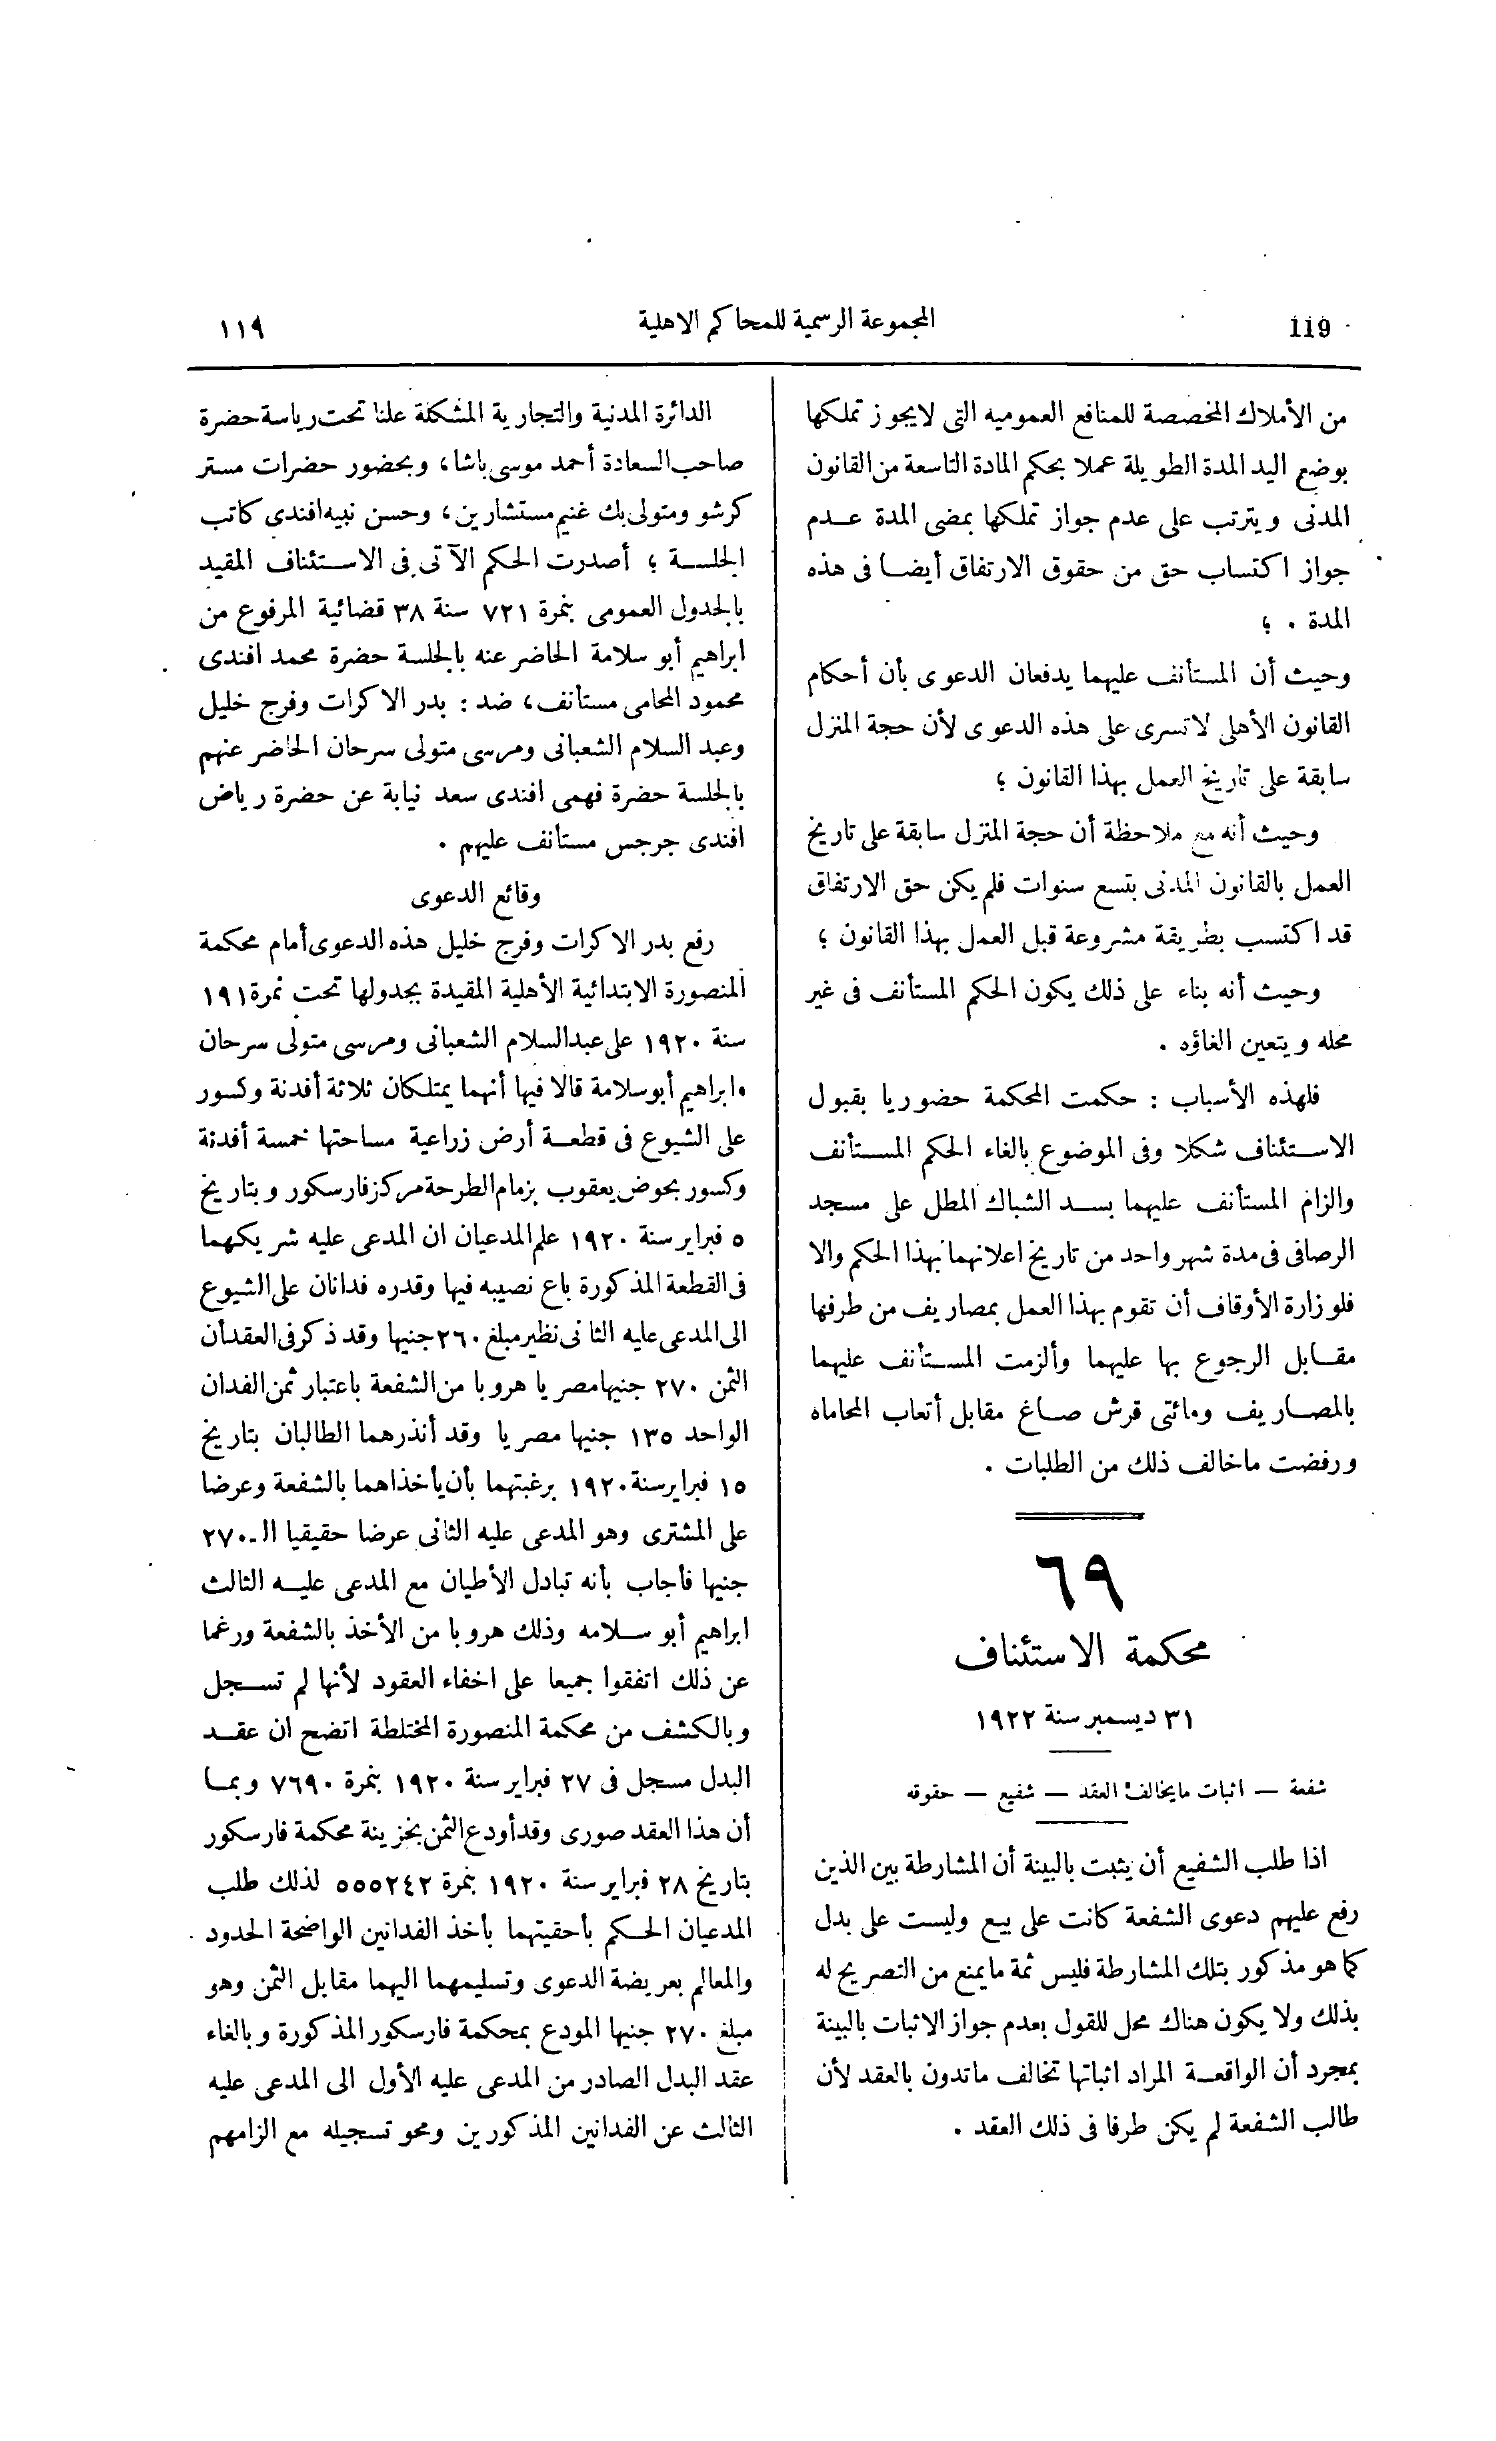 119
المجموعة الرسمية للمحاكم الاهلية
١١٩
من الأملاك المخصصة للمنافع العموميه التى لايجوز تملكها
بوضع اليد المدة الطويلة عملا بحكم المادة التاسعة من القانون
المدنى ويترتب على عدم جواز تملكها بمضى المدة عدم
جواز اكتساب حق من حقوق الارتفاق أيضا فى هذه
المدة . ؛
وحيث أن المستأنف عليهما يدفعان الدعوى بأن أحكام
القانون الأهلى لاتسرى على هذه الدعوى لأن حجة المنزل
سابقة على تاريخ العمل بهذا القانون ؛
وحيث أنه مع ملاحظة أن حجة المنزل سابقة على تاريخ
العمل بالقانون المدنى بتسع سنوات فلم يكن حق الارتفاق
قد اكتسب بطريقة مشروعة قبل العمل بهذا القانون ؛
وحيث أنه بناء على ذلك يكون الحكم المستأنف فى غير
محله ويتعين الغاؤه .
فلهذه الأسباب : حكمت المحكمة حضوريا بقبول
الاستئناف شكلا وفى الموضوع بالغاء الحكم المستأنف
والزام المستأنف عليهما بسد الشباك المطل على مسجد
الرصافى فى مدة شهر واحد من تاريخ اعلانهما بهذا الحكم والا
فلوزارة الأوقاف أن تقوم بهذا العمل بمصاريف من طرفها
مقابل الرجوع بها عليهما وألزمت المستأنف عليهما
بالمصاريف ومائتى قرش صاغ مقابل أتعاب المحاماه
ورفضت ماخالف ذلك من الطلبات .
٦٩
محكمة الاستئناف
٣١ ديسمبر سنة ١٩٢٢
شفعة — اثبات مايخالف العقد — شفيع — حقوقه
اذا طلب الشفيع أن يثبت بالبينة أن المشارطة بين الذين
رفع عليهم دعوى الشفعة كانت على بيع وليست على بدل
كما هو مذكور بتلك المشارطة فليس ثمة مايمنع من التصريح له
بذلك ولا يكون هناك محل للقول بعدم جواز الاثبات بالبينة
بمجرد أن الواقعة المراد اثباتها تخالف ماتدون بالعقد لأن
طالب الشفعة لم يكن طرفا فى ذلك العقد .
الدائرة المدنية والتجارية المشكلة علنا تحت رياسة حضرة
صاحب السعادة أحمد موسى باشا، وبحضور حضرات مستر
كرشو ومتولى بك غنيم مستشارين، وحسن نبيه افندى كاتب
الجلسة ؛ أصدرت الحكم الآتى فى الاستئناف المقيد
بالجدول العمومى بنمرة ٧٢١ سنة ٣٨ قضائية المرفوع من
ابراهيم أبو سلامة الحاضر عنه بالجلسة حضرة محمد افندى
محمود المحامى مستأنف، ضد : بدر الاكرات وفرج خليل
وعبد السلام الشعبانى ومرسى متولى سرحان الحاضر عنهم
بالجلسة حضرة فهمى افندى سعد نيابة عن حضرة رياض
افندى جرجس مستأنف عليهم .
وقائع الدعوى
رفع بدر الاكرات وفرج خليل هذه الدعوى أمام محكمة
المنصورة الابتدائية الأهلية المقيدة بجدولها تحت نمرة ١٩١
سنة ١٩٢٠ على عبدالسلام الشعبانى ومرسى متولى سرحان
وابراهيم أبوسلامة قالا فيها أنهما يمتلكان ثلاثة أفدنة وكسور
على الشيوع فى قطعة أرض زراعية مساحتها خمسة أفدنة
وكسور بحوض يعقوب بزمام الطرحة مركز فارسكور وبتاريخ
٥ فبراير سنة ١٩٢٠ علم المدعيان ان المدعى عليه شريكهما
فى القطعة المذكورة باع نصيبه فيها وقدره فدانان على الشيوع
الى المدعى عليه الثانى نظير مبلغ ٢٦٠ جنيها وقد ذكر فى العقد أن
الثمن ٢٧٠ جنيها مصريا هروبا من الشفعة باعتبار ثمن الفدان
الواحد ١٣٥ جنيها مصريا وقد أنذرهما الطالبان بتاريخ
١٥ فبراير سنة ١٩٢٠ برغبتهما بأن يأخذاهما بالشفعة وعرضا
على المشترى وهو المدعى عليه الثانى عرضا حقيقيا الـ ٢٧٠
جنيها فأجاب بأنه تبادل الأطيان مع المدعى عليه الثالث
ابراهيم أبو سلامه وذلك هروبا من الأخذ بالشفعة ورغما
عن ذلك اتفقوا جميعا على اخفاء العقود لأنها لم تسجل
وبالكشف من محكمة المنصورة المختلطة اتضح ان عقد
البدل مسجل فى ٢٧ فبراير سنة ١٩٢٠ بنمرة ٧٦٩٠ وبما
أن هذا العقد صورى وقد أودع الثمن بخزينة محكمة فارسكور
بتاريخ ٢٨ فبراير سنة ١٩٢٠ بنمرة ٥٥٥٢٤٢ لذلك طلب
المدعيان الحكم بأحقيتهما بأخذ الفدانين الواضحة الحدود
والمعالم بعريضة الدعوى وتسليمهما اليهما مقابل الثمن وهو
مبلغ ٢٧٠ جنيها المودع بمحكمة فارسكور المذكورة وبالغاء
عقد البدل الصادر من المدعى عليه الأول الى المدعى عليه
الثالث عن الفدانين المذكورين ومحو تسجيله مع الزامهم